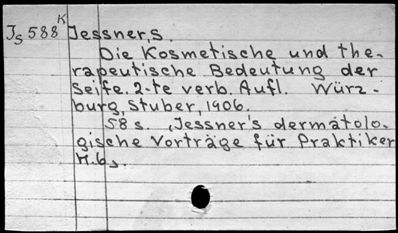 K
Js 588 Jessner, S.
Die Kosmetische und the-
rapeutische Bedeutung der
Seife. 2-te verb. Aufl. Würz-
burg, Stuber, 1906.
58 s. „Jessner's dermatolo-
gische Vorträge für Praktiker
H. 6".